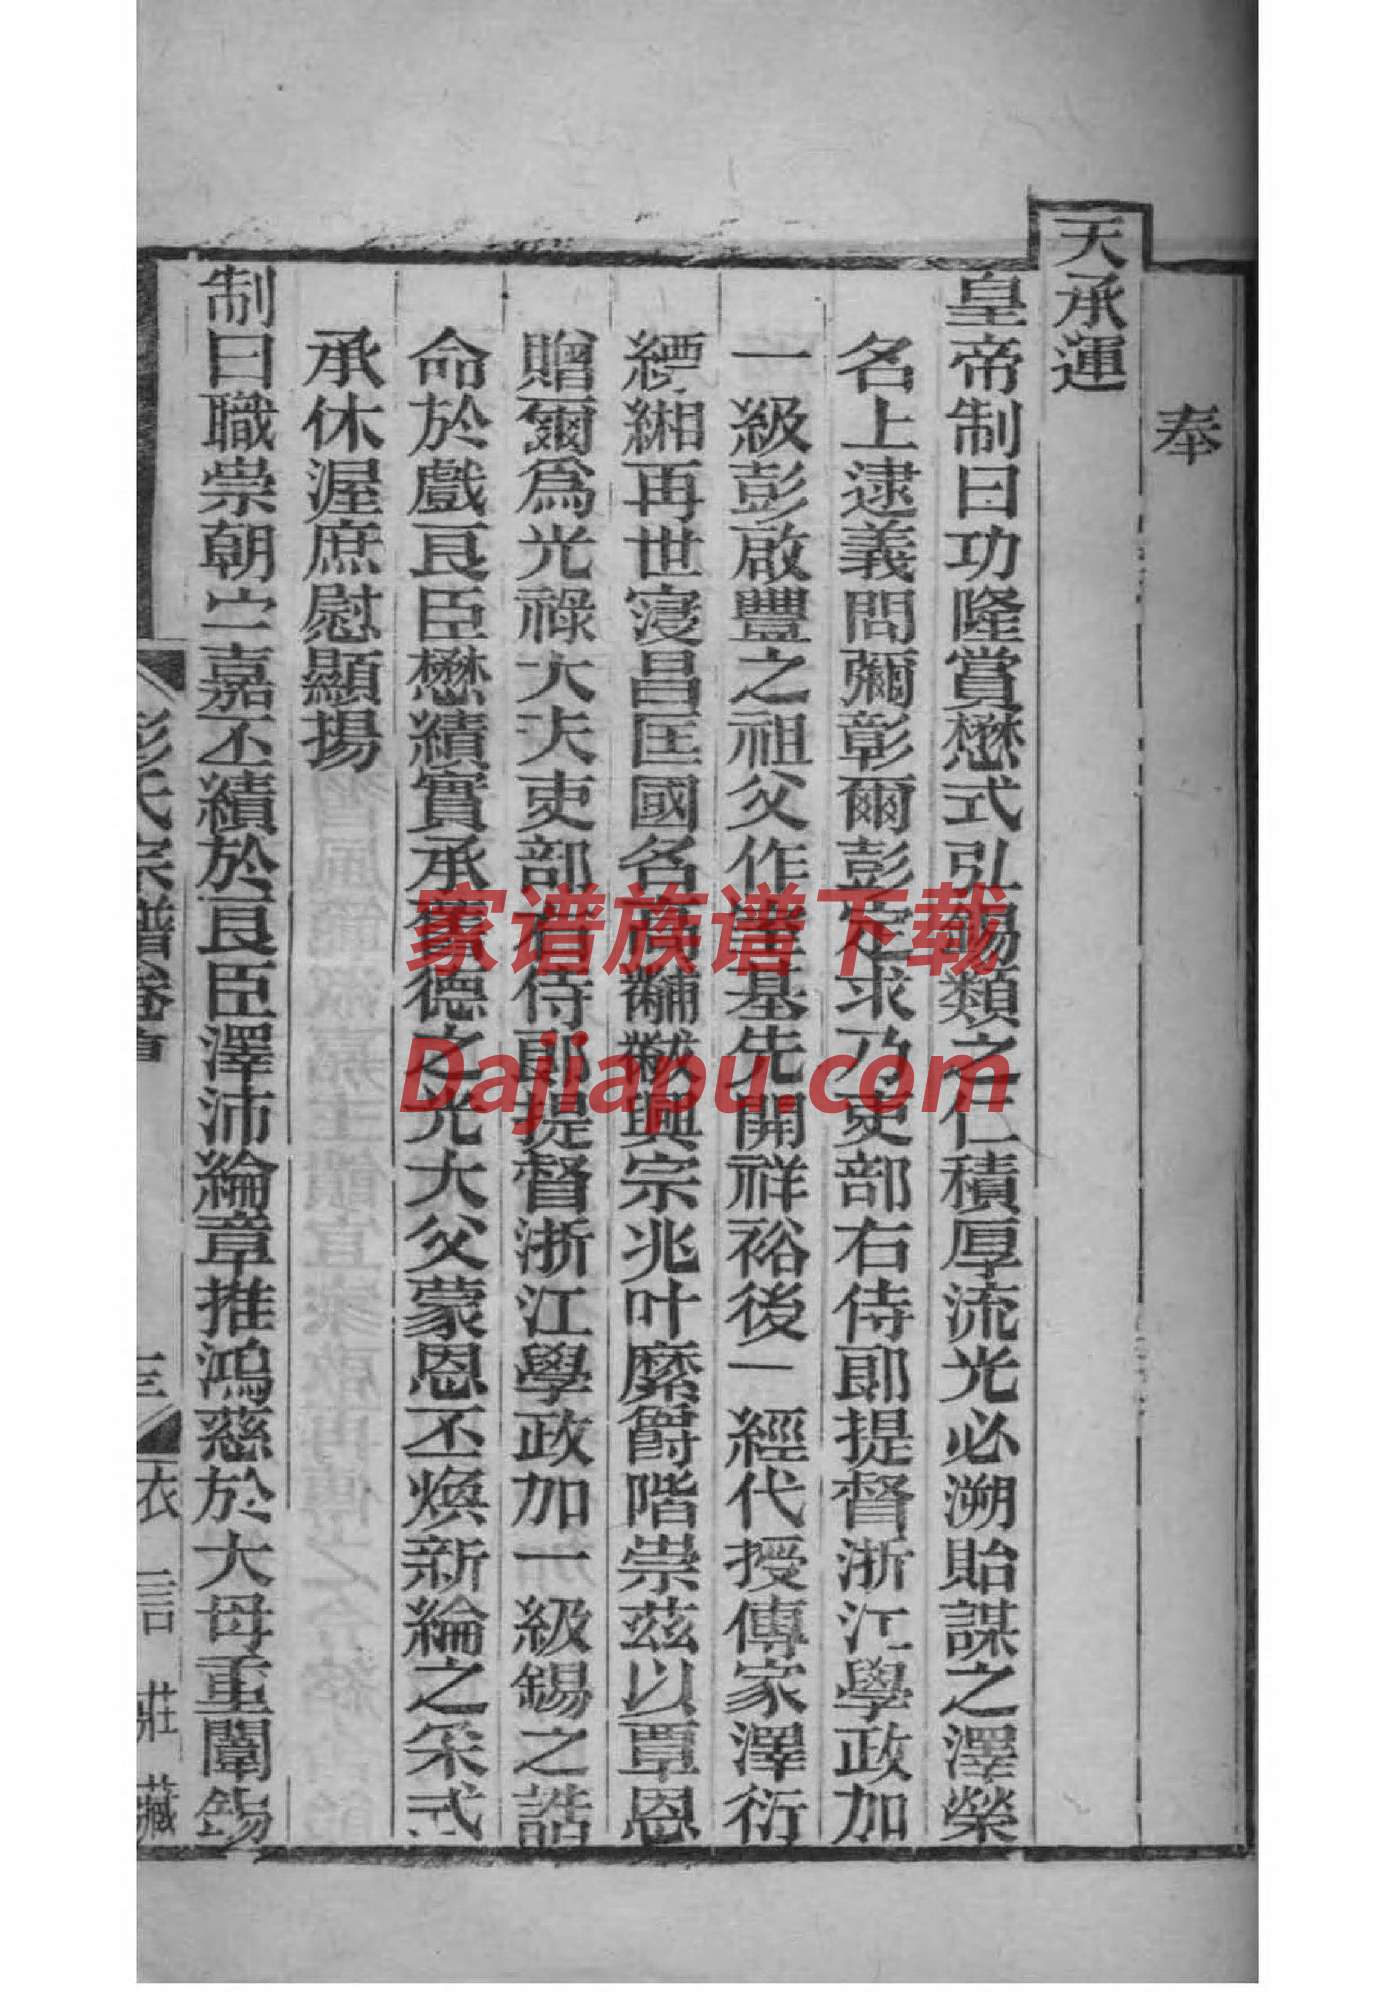 奉
天承運
皇帝制曰功隆賞懋式弘錫類之仁積厚流光必溯貽謀之澤榮
名上逮義問彌彰爾彭定求乃吏部右侍郎提督浙江學政加
一級彭啟豐之祖父作肇基先開祥裕後一經代授傳家澤衍
縹緗再世寖昌匡國名高黼黻興宗兆叶縻爵階崇茲以覃恩
贈爾為光祿大夫吏部右侍郎提督浙江學政加一級錫之誥
命於戲良臣懋績實承象德之光大父蒙恩丕煥新綸之采式
承休渥庶慰顯揚
制曰職崇朝宁嘉丕績於良臣澤沛綸章推鴻慈於大母重闈錫
彭氏宗譜卷首
三
衣言莊藏
家谱族谱下载
Dajiapu.com